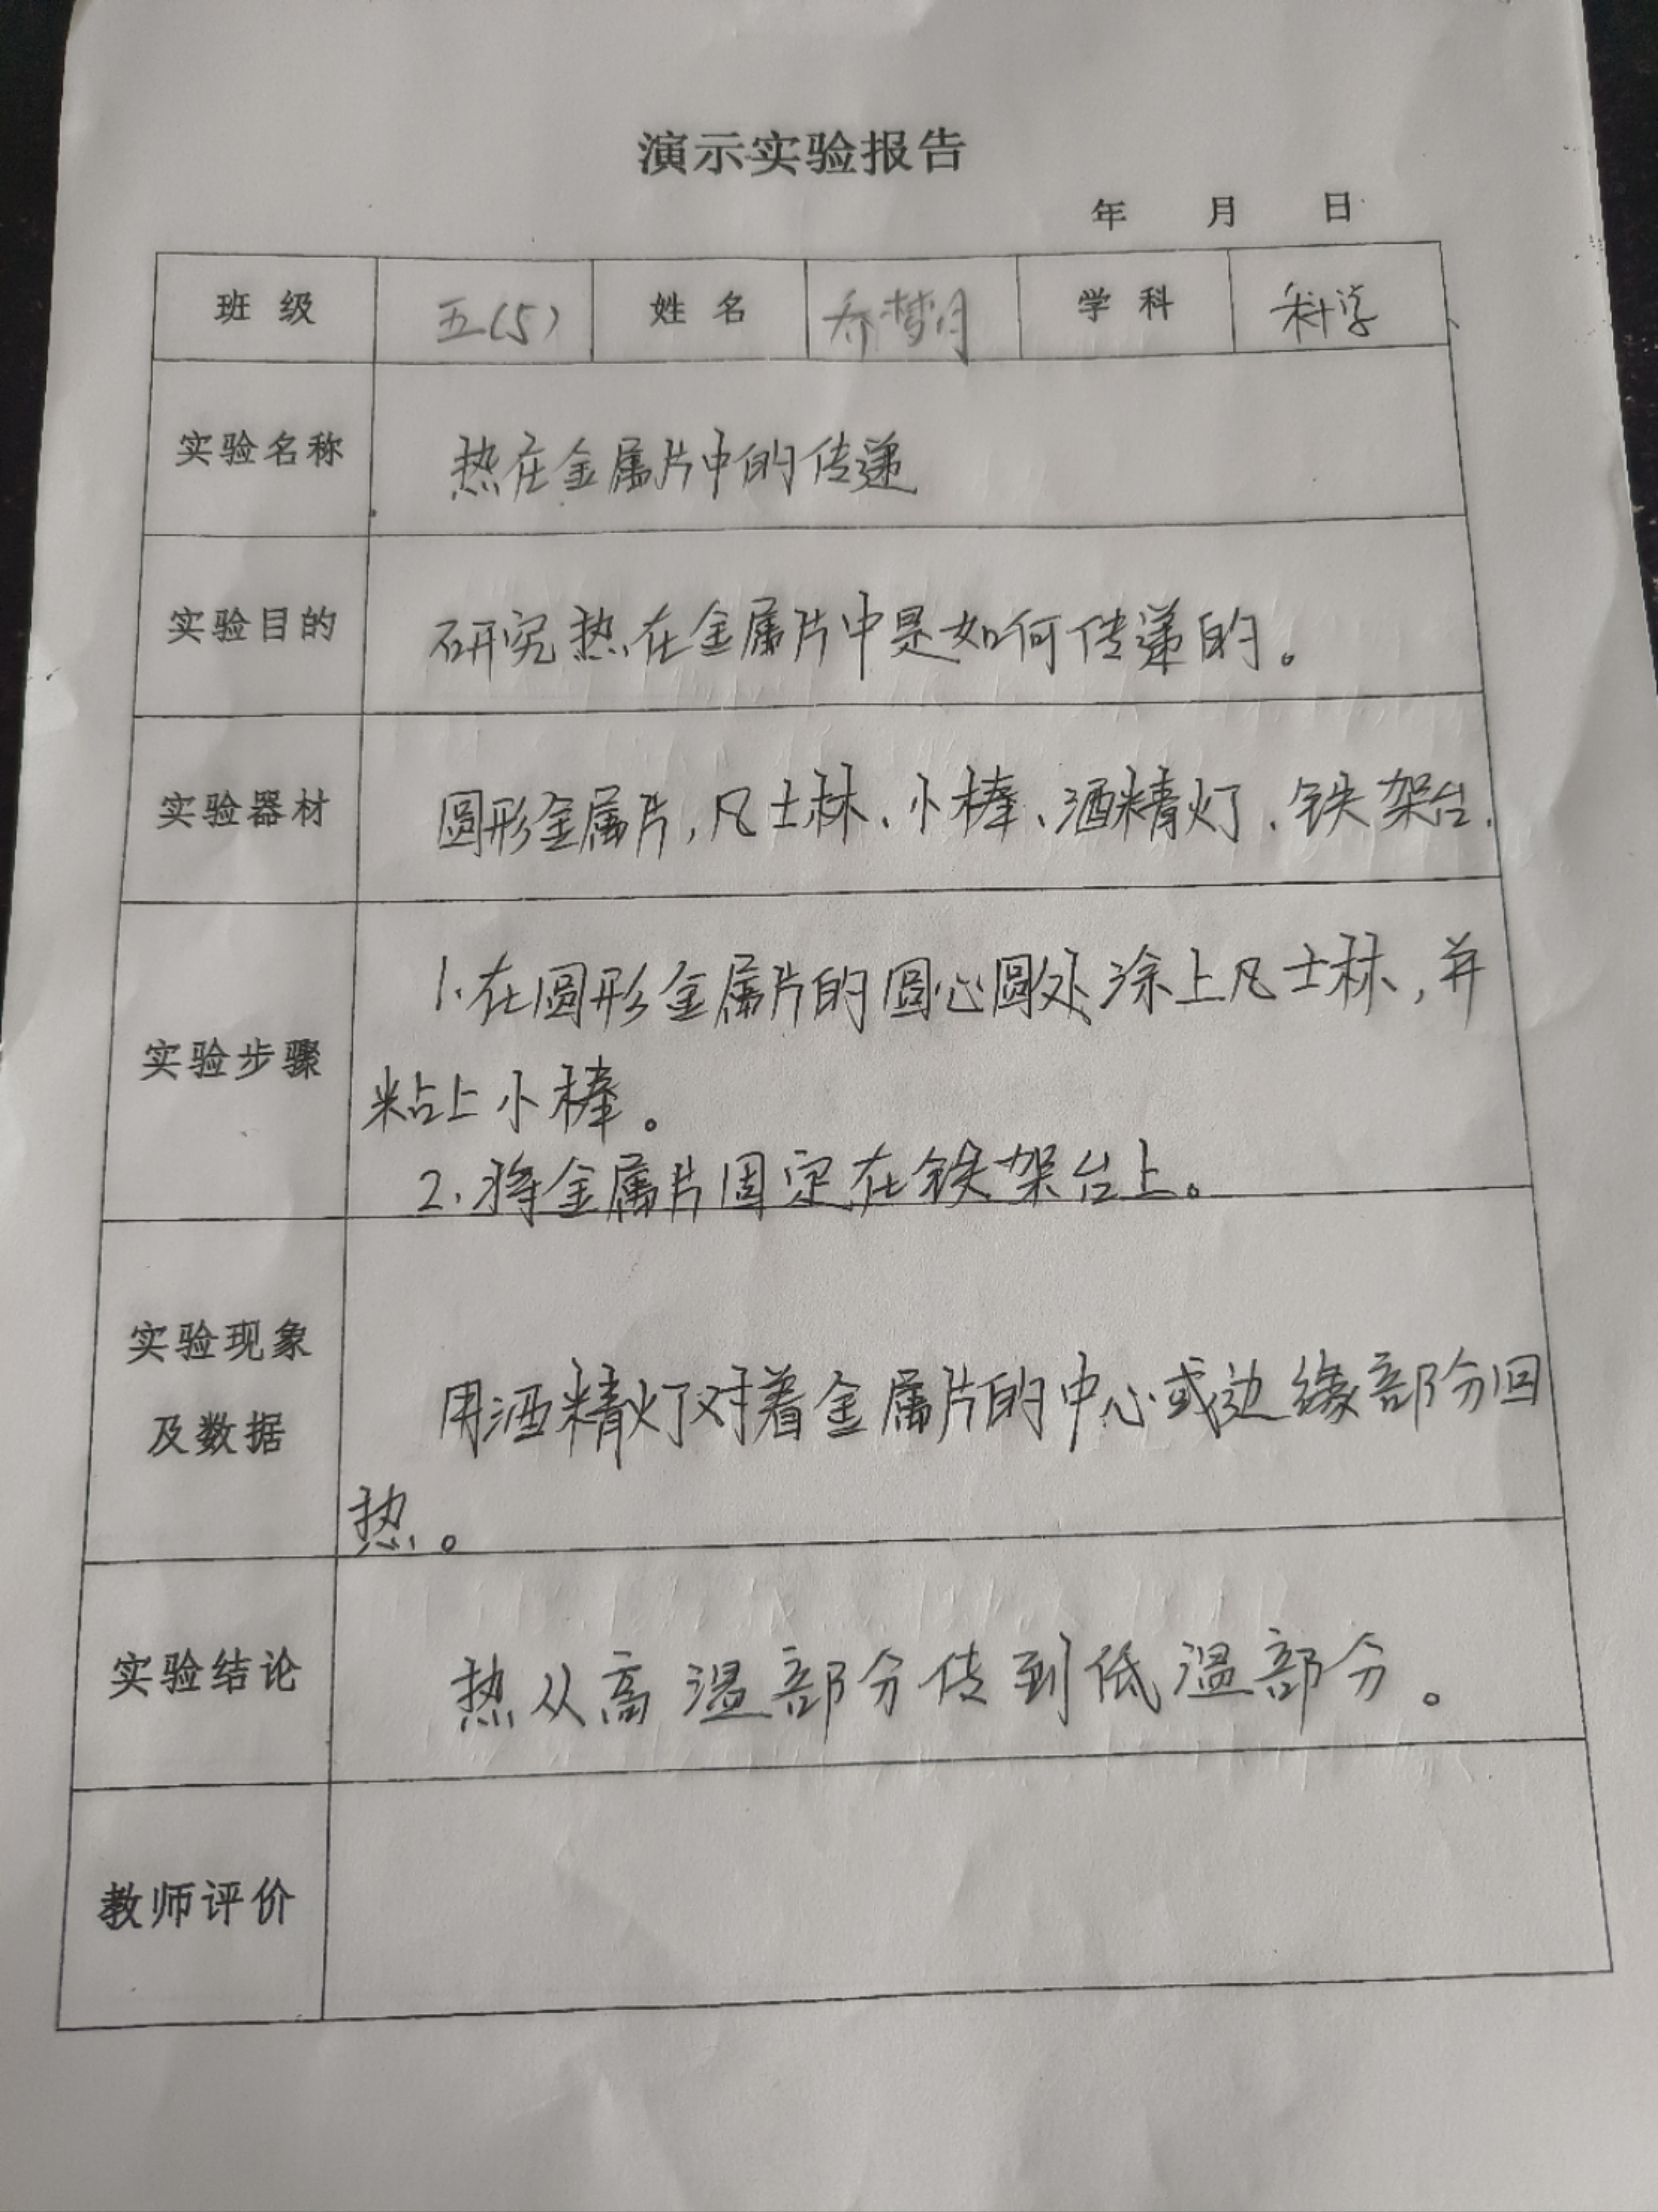 演示实验报告
年 月 日
班级 五(5) 姓名 乔梦月 学科 科学
实验名称 热在金属片中的传递
实验目的 研究热在金属片中是如何传递的。
实验器材 圆形金属片,凡士林、小棒、酒精灯、铁架台.
实验步骤 1.在圆形金属片的圆心圆处涂上凡士林,并
粘上小棒。
2.将金属片固定在铁架台上。
实验现象
及数据 用酒精灯对着金属片的中心或边缘部分回
热。
实验结论 热从高温部分传到低温部分。
教师评价